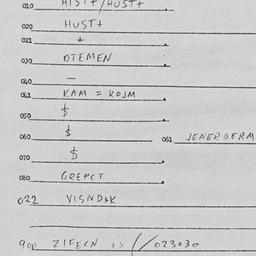 010 HIST+/HUST+
020 HUST+
021 +
030 OTEMEN
040 —
041 KAM = KOJM
050 $
060 $ 061 JENERDERM
070 $
080 GREPCT
022 VISNDAK
900 ZIFECN >> (/023030